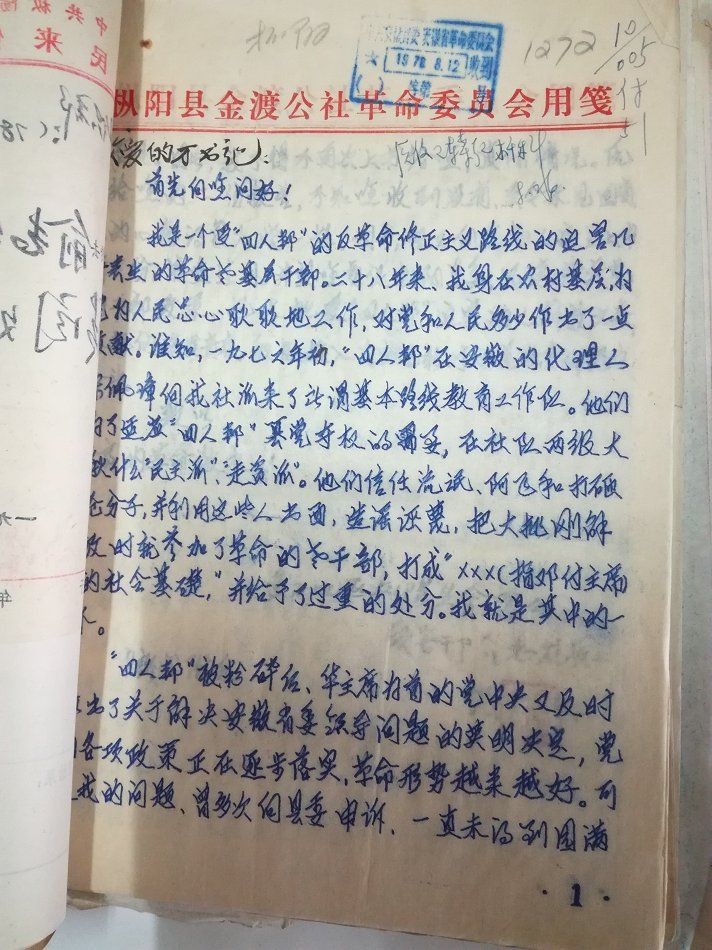 中共枞阳
民来信
1272
10/005
安徽省革命委员会
收到
1978.8.12
枞阳县金渡公社革命委员会用笺
爱的万书记:
首先向您问好!
我是一个受“四人邦”的反革命修正主义路线的迫害几
丧生的革命老基层干部。二十八年来、我身在农村基层,为
为人民忠心耿耿地工作,对党和人民多少作出了一点
献。谁知,一九七六年初,“四人邦”在安徽的代理人
佩璋向我社派来了所谓基本路线教育工作队。他们
了适应“四人邦”篡党夺权的需要,在社队两级大
什么“民主派”、“走资派”。他们信任流氓、阿飞和打砸
分子,并利用这些人出面,造谣诬蔑,把大批刚解
时就参加了革命的老干部,打成“×××(指邓付主席
的社会基礎,”并给予了过重的处分。我就是其中的一
个。
“四人邦”被粉碎后、华主席为首的党中央又及时
出了关于解决安徽省委领导问题的英明决定,党
各项政策正在逐步落实,革命形势越来越好。可
我的问题、曾多次向县委申诉、一直未得到圆满
·1